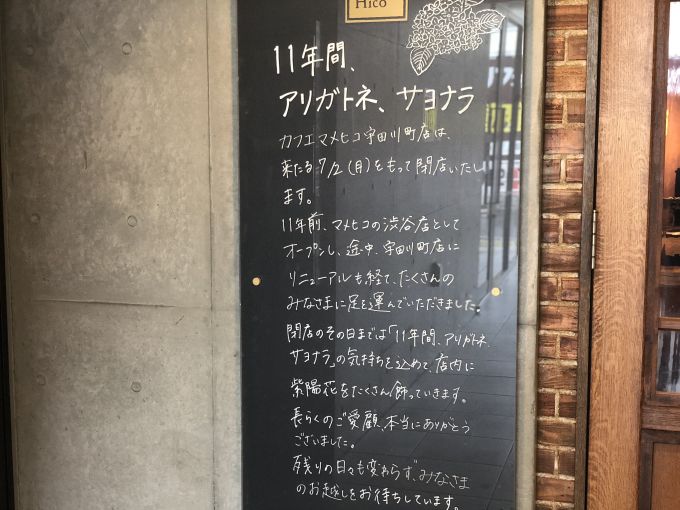 Hico
11年間、
アリガトネ、サヨナラ
カフエマメヒコ宇田川町店は、
来たる7/2(月)をもって閉店いたし
ます。
11年前、マメヒコの渋谷店として
オープンし、途中、宇田川町店に
リニューアルも経て、たくさんの
みなさまに足を運んでいただきました。
閉店のその日までは「11年間、アリガトネ、
サヨナラ」の気持ちを込めて、店内に
紫陽花をたくさん飾っていきます。
長らくのご愛顧、本当にありがとう
ございました。
残りの日々も変わらず、みなさま
のお越しをお待ちしています。